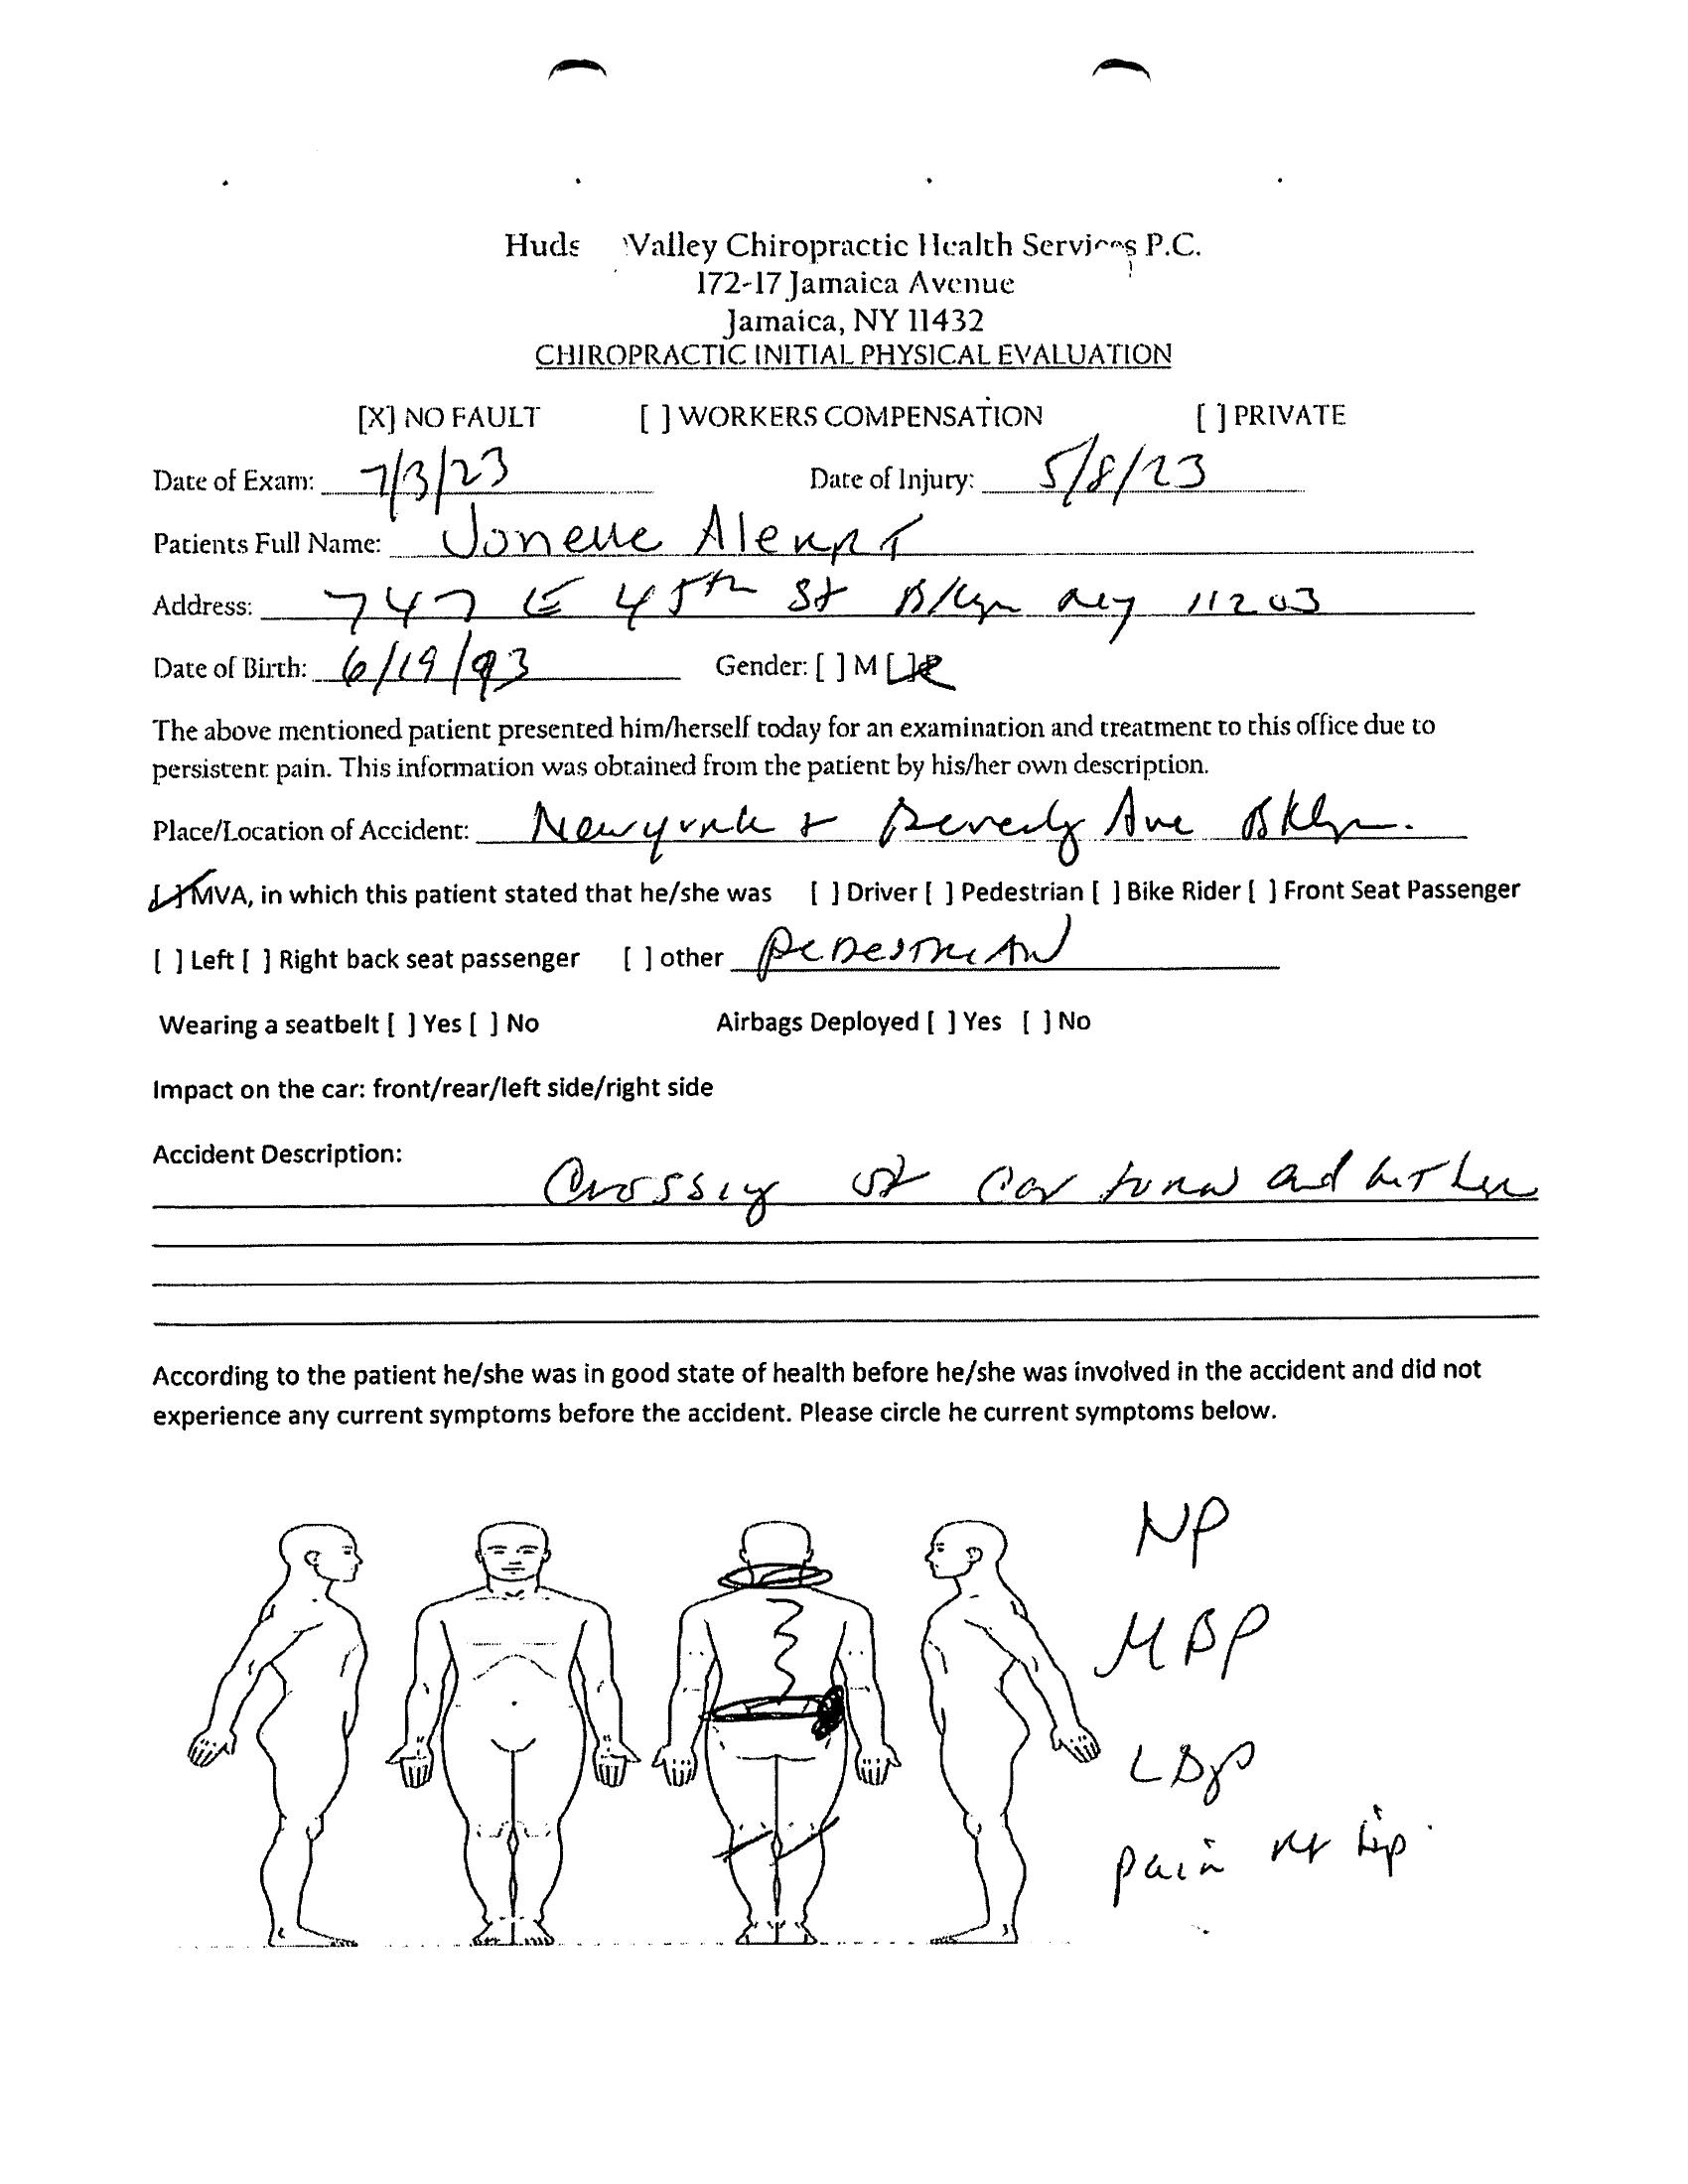 Huds Valley Chiropractic Health Services P.C.
172-17 Jamaica Avenue
Jamaica, NY 11432
CHIROPRACTIC INITIAL PHYSICAL EVALUATION
[X] NO FAULT [ ] WORKERS COMPENSATION [ ] PRIVATE
Date of Exam: 7/3/23 Date of Injury: 5/8/23
Patients Full Name: Jonelle
Address: 747 E 45th St Bklyn NY 11203
Date of Birth: 6/19/93 Gender: [ ] M [ ]
The above mentioned patient presented him/herself today for an examination and treatment to this office due to
persistent pain. This information was obtained from the patient by his/her own description.
Place/Location of Accident: New york + Beverly Ave Bklyn.
[ ] MVA, in which this patient stated that he/she was [ ] Driver [ ] Pedestrian [ ] Bike Rider [ ] Front Seat Passenger
[ ] Left [ ] Right back seat passenger [ ] other Pedestrian
Wearing a seatbelt [ ] Yes [ ] No Airbags Deployed [ ] Yes [ ] No
Impact on the car: front/rear/left side/right side
Accident Description:
Crossing st car turned and hit her
According to the patient he/she was in good state of health before he/she was involved in the accident and did not
experience any current symptoms before the accident. Please circle he current symptoms below.
NP
MBP
LBP
pain rt hip